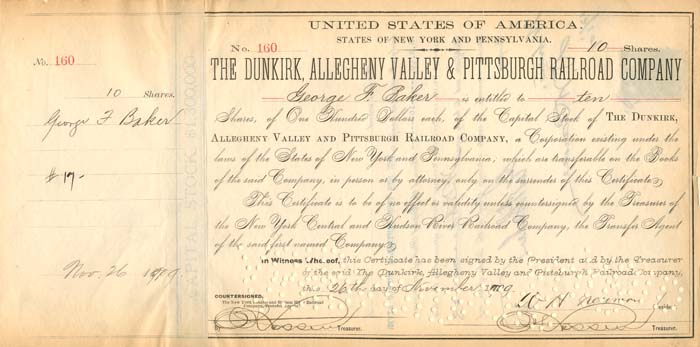 No. 160
10 Shares.
George F Baker
# 17-
Nov. 26 1909
CAPITAL STOCK
UNITED STATES OF AMERICA.
STATES OF NEW YORK AND PENNSYLVANIA.
No. 160 10 Shares.
THE DUNKIRK, ALLEGHENY VALLEY & PITTSBURGH RAILROAD COMPANY
George F. Baker is entitled to ten
Shares, of One Hundred Dollars each, of the Capital Stock of THE DUNKIRK,
ALLEGHENY VALLEY AND PITTSBURGH RAILROAD COMPANY, a Corporation existing under the
laws of the States of New York and Pennsylvania, which are transferable on the Books
of the said Company, in person or by attorney, only on the surrender of this Certificate
This Certificate is to be of no effect or validity unless countersigned by the Treasurer of
the New York Central and Hudson River Railroad Company, the Transfer Agent
of the said first named Company
In Witness Whereof, this Certificate has been signed by the President and by the Treasurer
of the said The Dunkirk, Allegheny Valley and Pittsburgh Railroad Company,
this 26th day of November 1909.
COUNTERSIGNED.
The New York Central and Hudson River Railroad
Company, Transfer Agent
Treasurer. Treasurer.